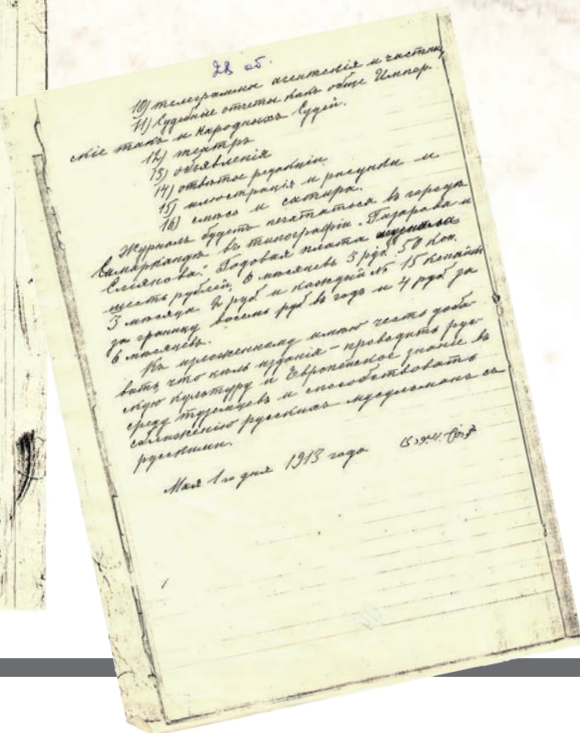 28 об.
10) телеграммы агентскія и частныя,
11) Судебные отчеты какъ обще Импер-
скіе такъ и Народныхъ Судей.
12) театръ
13) объявленія
14) отвѣты редакціи
15) иллюстрація и рисунки и
16) смѣсь и сатира.
Журналъ будетъ печататься въ городѣ
Самаркандѣ въ типографіи Газарова и
Слянова. Годовая плата
шесть рублей, 6 мѣсяцевъ 3 руб. 50 коп.
3 мѣсяца 2 руб и каждый № 15 копѣекъ
за границу восемь руб въ годъ и 4 руб за
6 мѣсяцевъ.
Къ изложенному имѣю честь доба-
вить что цѣль изданія - проводить рус-
скую культуру и Европейское знаніе въ
среду туземцевъ и способствовать
сближенію русскихъ мусульманъ съ
русскими.
Мая 1го дня 1913 года